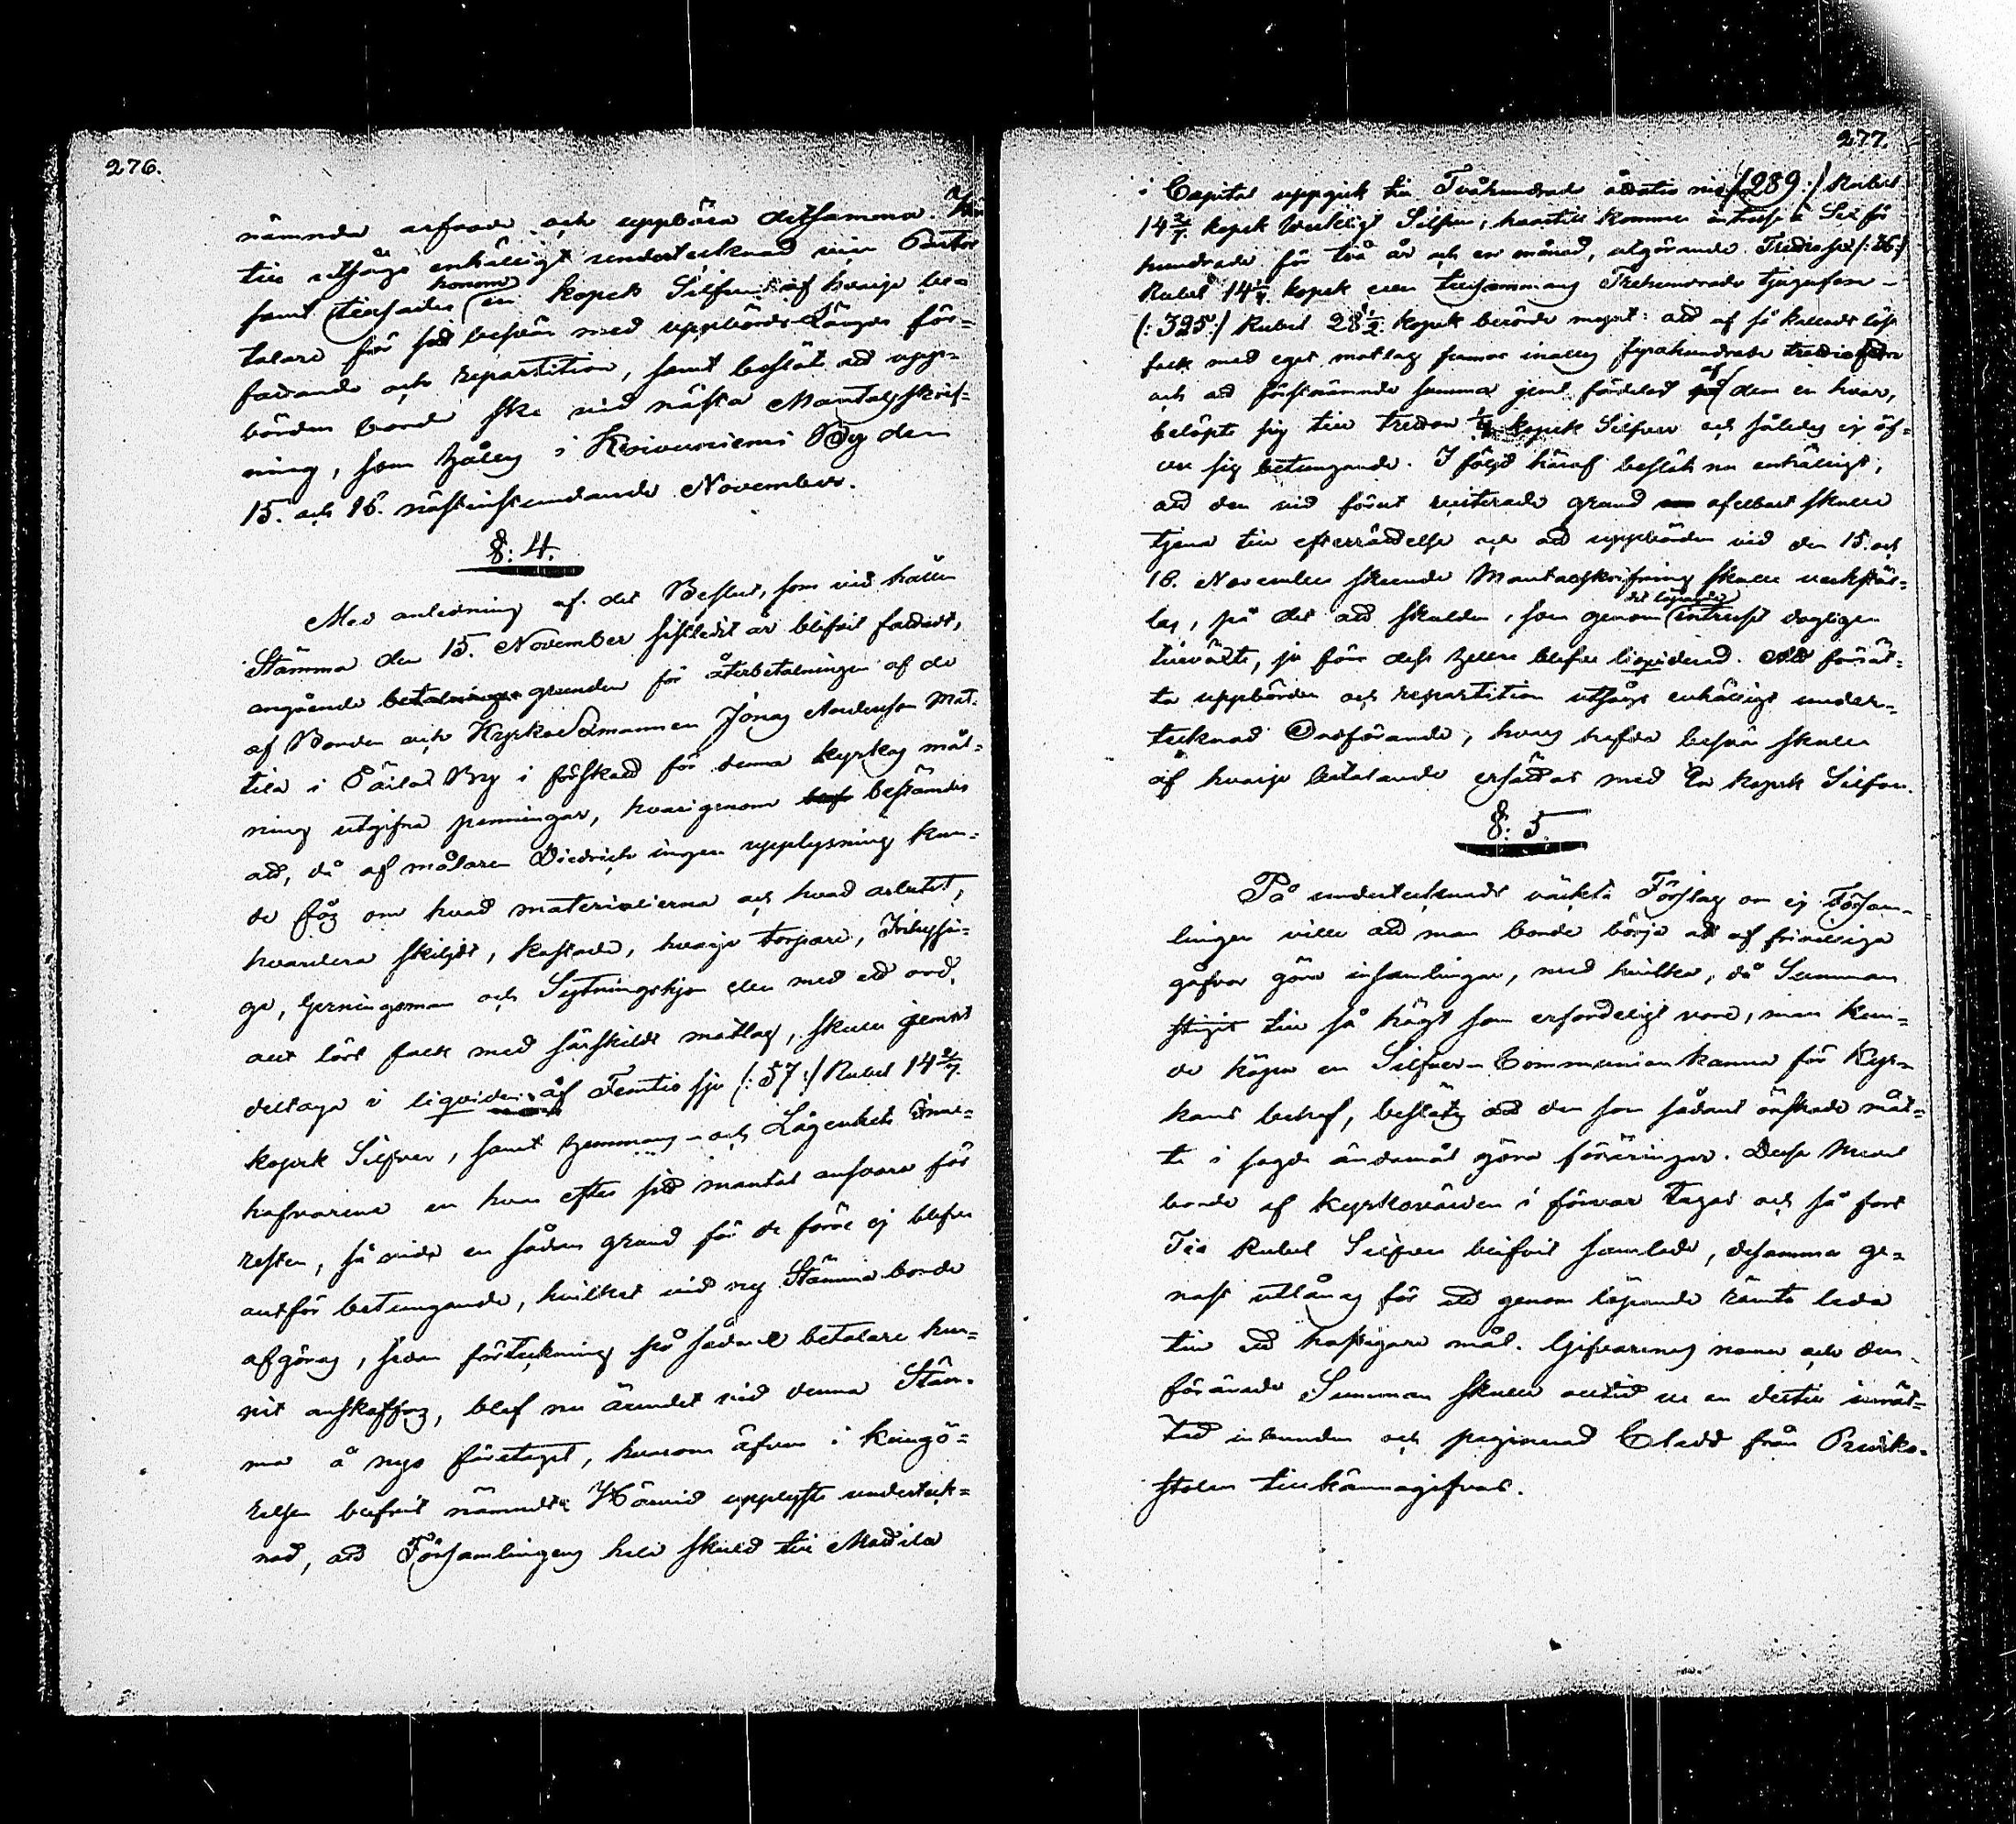 276.
nämnda arfvode och uppbära detsamma. Här
till utsågs enhälligt undertecknad min Pastor
honom
samt tillsades en kopek Silfver af hvarje be-
talare för sitt besvär med uppbörds Längds för-
fattande och repartition, samt beslöts att upp-
börden borde ske vid nästa Mantalsskrif-
ning, som hålles i Koivuniemi By den
15. och 16. nästinstundande November.
§: 4.
Med anledning af det Beslut, som vid hållen
Stämma den 15. November sistledit år blifvit fattadt,
angående betalnings grunden för återbetalningen af de
af Bonden och Kyrkovärdmannen Jonas Andersson Mat-
tila i Päilas By i förskott för denna kyrkas mål-
ning utgifna penningar, hvarigenom blef bestämdt
att, då af målaren Diedrich ingen upplysning kun-
de fås om hvad materialierna och hvad arbetet,
hvardera skiljdt, kostade, hvarje torpare, Inhyssin-
ge, Gerningsman och Sytningshjon eller med ett ord,
allt löst folk med särskildt matlag, skulle jemnt
deltaga i liqviden af Femtio sju /: 57 :/ Rubel 14 2/7
kopek Silfver, samt hemmans- och Lägenhets Inne-
hafvarena en hvar efter sitt mantal ansvara för
resten, så vida en sådan grund för de förre ej blefve
alltför betungande, hvilket vid ny Stämma borde
afgöras, sedan förteckning på sådane betalare hun-
nit anskaffas, blef nu ärendet vid denna Stäm-
ma å nyo företaget, hvarom äfven i kungö-
relsen blifvit nämndt. Härvid upplyste underteck-
nad, att Församlingens hela skuld till Mattila
277.
i Capital uppgick till Tvåhundrade åttatio nio /: 289 :/ Rubel
14 2/7 kopek Verkligt Silfver, hvartill kommer intresse à Sex för
hundrade för två år och en månad, utgörande Trettiosex /: 36 :/
Rubel 14 kopek eller tillsammans Trehundrade tjugufem
/: 325 :/ Rubel 28 1/2 kopek berörde mynt: att af så kalladt löst
folk med eget matlag funnos inalles fyrahundrade trettio
af
och att förstnämnde summa jemt fördelad på dem en hvar,
belöpte sig till tretton kopek Silfver och således ej öf-
ver sig betungande. I följd häraf beslöts nu enhälligt,
att den vid förut reciterade grund ofelbart skulle
tjena till efterrättelse och att uppbörden vid den 15. och
16. November skeende Mantalsskrifning skulle verkstäl-
det löpande
las, på det att skulden, som genom intresset dagligen
tillväxte, ju förr dess heller blefve liqviderad. Att förrät-
ta uppbörden och repartition utsågs enhälligt under-
tecknad Ordförande, hvars hafda besvär skulle
af hvarje betalande ersättas med En kopek Silfver.
§: 5.
På undertecknads väckta Förslag om ej Försam-
lingen ville att man borde börja att af frivilliga
gåfvor göra insamlingar, med hvilka, då Summan
stigit till så högt som erforderligt vore, man kun-
de köpa en Silfver-Communion kanna för Kyr-
kans behof, beslöts att den som sådant önskade måt-
te i sagde ändamål göra föräringar. Desse Medel
borde af kyrkovärden i förvar tagas och så fort
Tio Rubel Silfver blifvit samlade, desamma ge-
nast utlånas för att genom löpande ränta leda
till ett hastigare mål. Gifvarenes namn och den
förärade Summan skulle alltid ur en dertill inrät-
tad inbunden och paginerad Cladd från Prediko-
stolen tillkännagifvas.